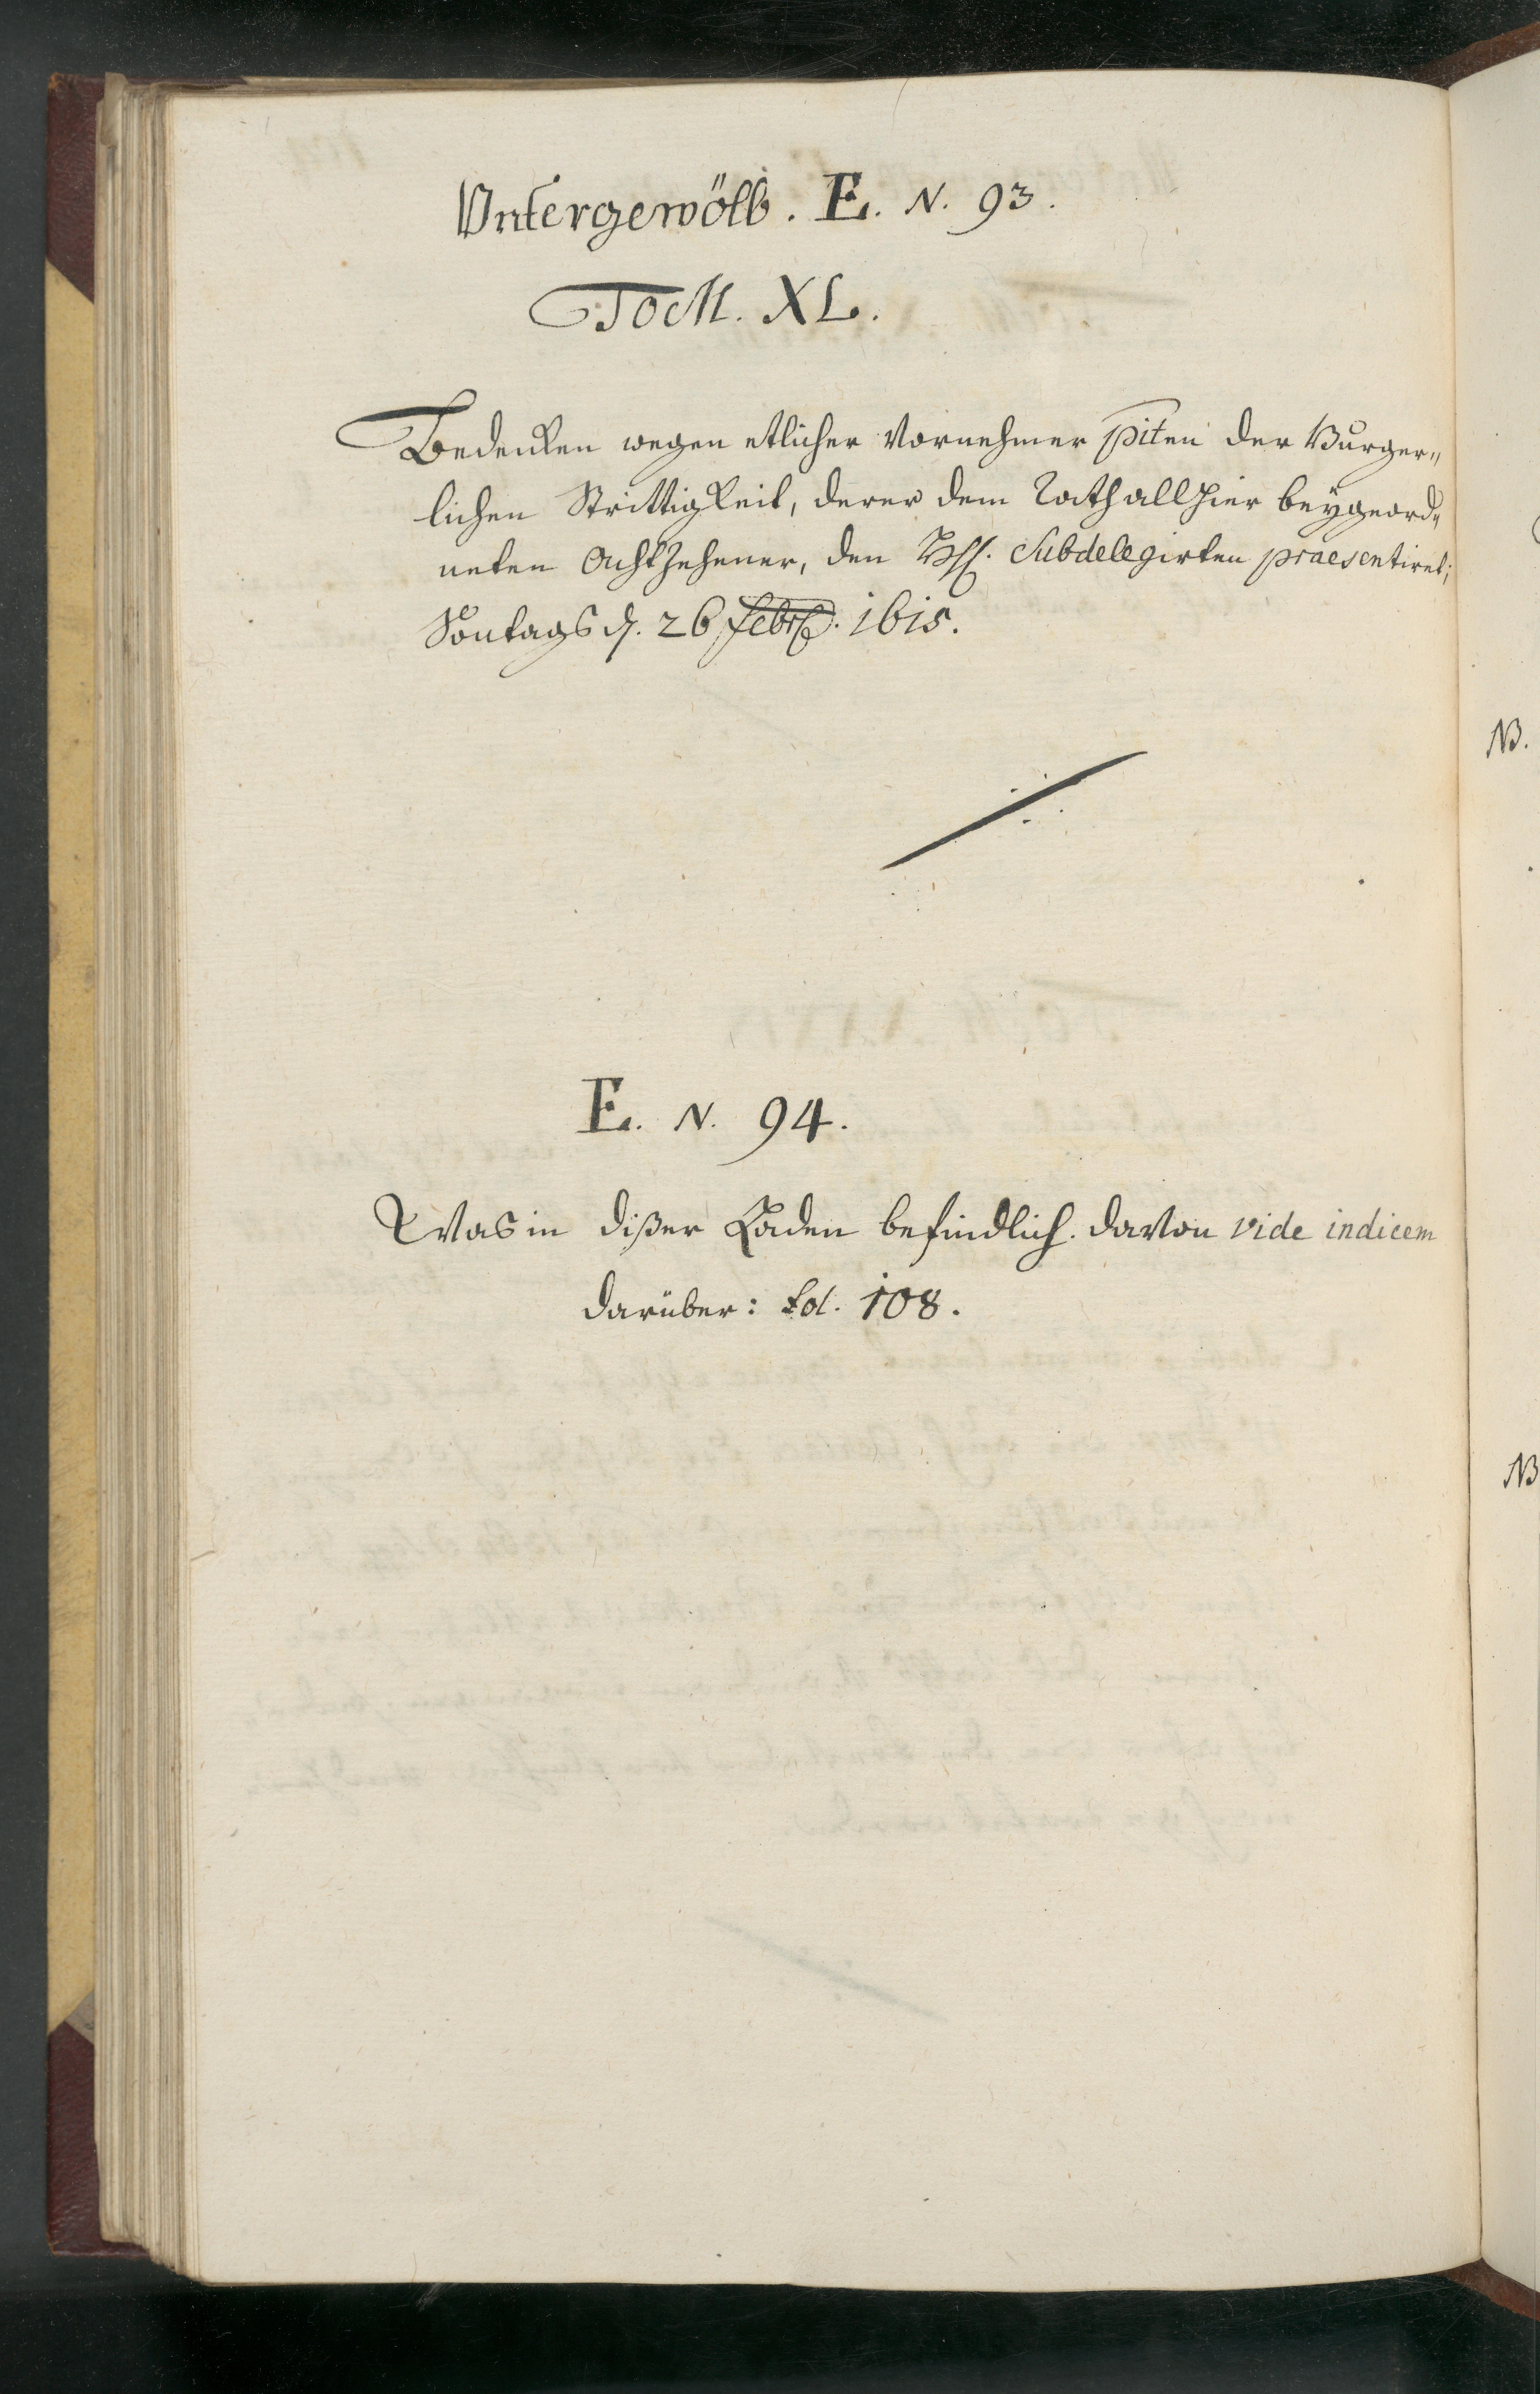 Vntergewölb. E. N. 93.
Tom. XL.
Bedencken wegen etlicher Vornehmer Piten der Burger„
lichen Strittigkeit, derer dem Rath allhier beÿgeord„
neten Achtzehener, den Subdelegirten praesentiret;
Sontags d. 26 Febr. 1615.
E. N. 94.
Was in dißer Laden befindlich. davon vide indicem
darüber: Fol. 108.
NB.
NB